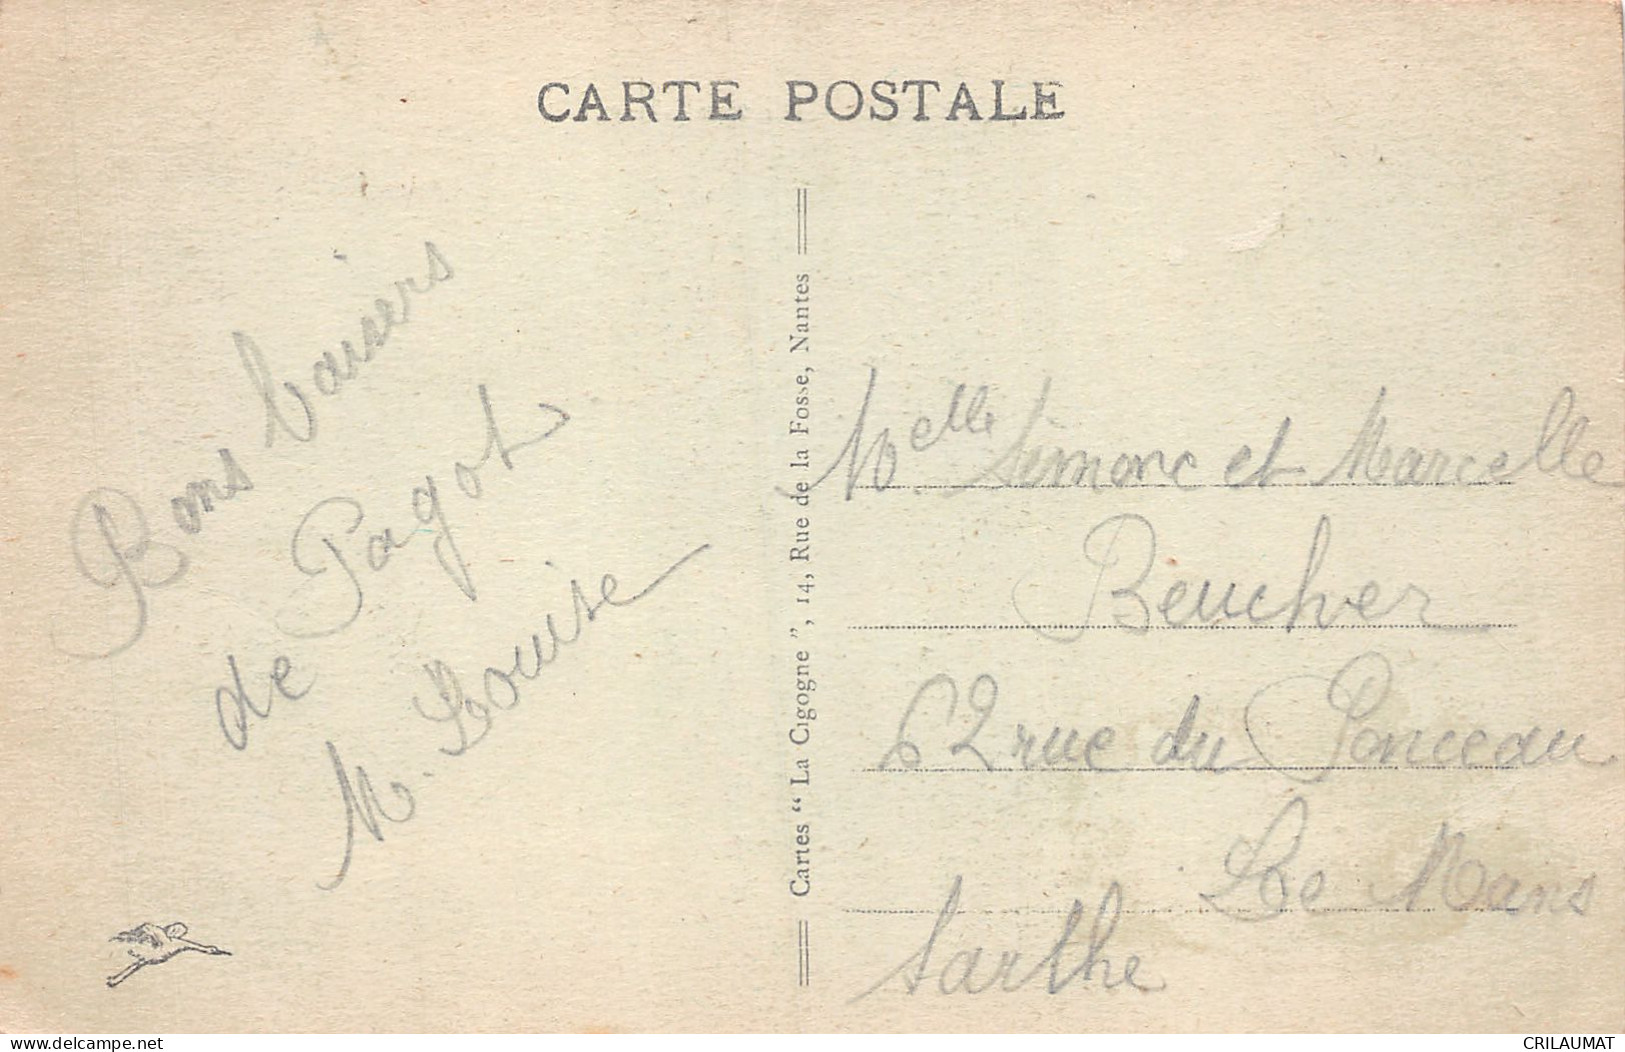 CARTE POSTALE
Bons baisers
de Pagot
M. Louise
Cartes “ La Cigogne ”, 14, Rue de la Fosse, Nantes
Melle Simone et Marcelle
Beucher
62 rue du Ponceau
Le Mans
Sarthe
www.delcampe.net
CRILAUMAT